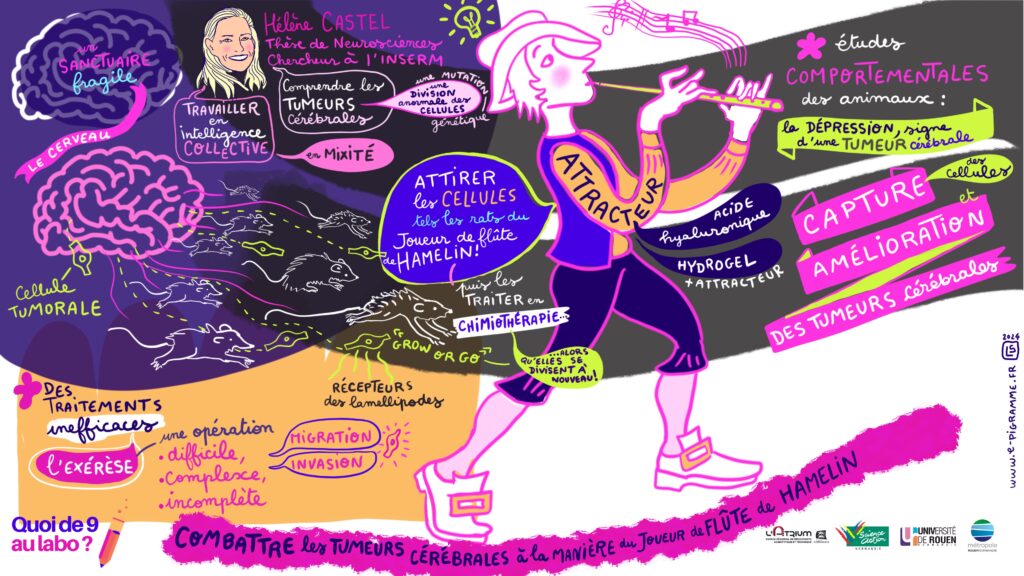 un
SANCTUAIRE
fragile
LE CERVEAU
Hélène CASTEL
Thèse de Neurosciences
Chercheur à l'INSERM
TRAVAILLER
en
intelligence
COLLECTIVE
Comprendre les
TUMEURS
Cérébrales
une MUTATION
une
DIVISION
anormale des
CELLULES
génétique
en MIXITÉ
Cellule
TUMORALE
ATTIRER
les CELLULES
tels les rats du
Joueur de flûte
de HAMELIN!
puis les
TRAITER en
CHIMIOTHÉRAPIE...
"GROW OR GO"
...ALORS
QU'ELLES SE
DIVISENT À
NOUVEAU!
RÉCEPTEURS
des lamellipodes
ATTRACTEUR
ACIDE
hyaluronique
HYDROGEL
+ ATTRACTEUR
études
COMPORTEMENTALES
des animaux :
la DÉPRESSION, signe
d'une TUMEUR cérébrale
CAPTURE
des
cellules
et
AMÉLIORATION
DES TUMEURS cérébrales
DES
TRAITEMENTS
inefficaces
l'EXÉRÈSE
une opération
• difficile,
• complexe,
incomplète
MIGRATION
INVASION
Quoi de 9
au labo ?
COMBATTRE les TUMEURS CÉRÉBRALES à la MANIÈRE du JOUEUR de FLÛTE de HAMELIN
L'ATRIUM
Science
action
NORMANDIE
UNIVERSITÉ
DE ROUEN
NORMANDIE
métropole
ROUENNORMANDIE
2024
WWW.E-PIGRAMME.FR